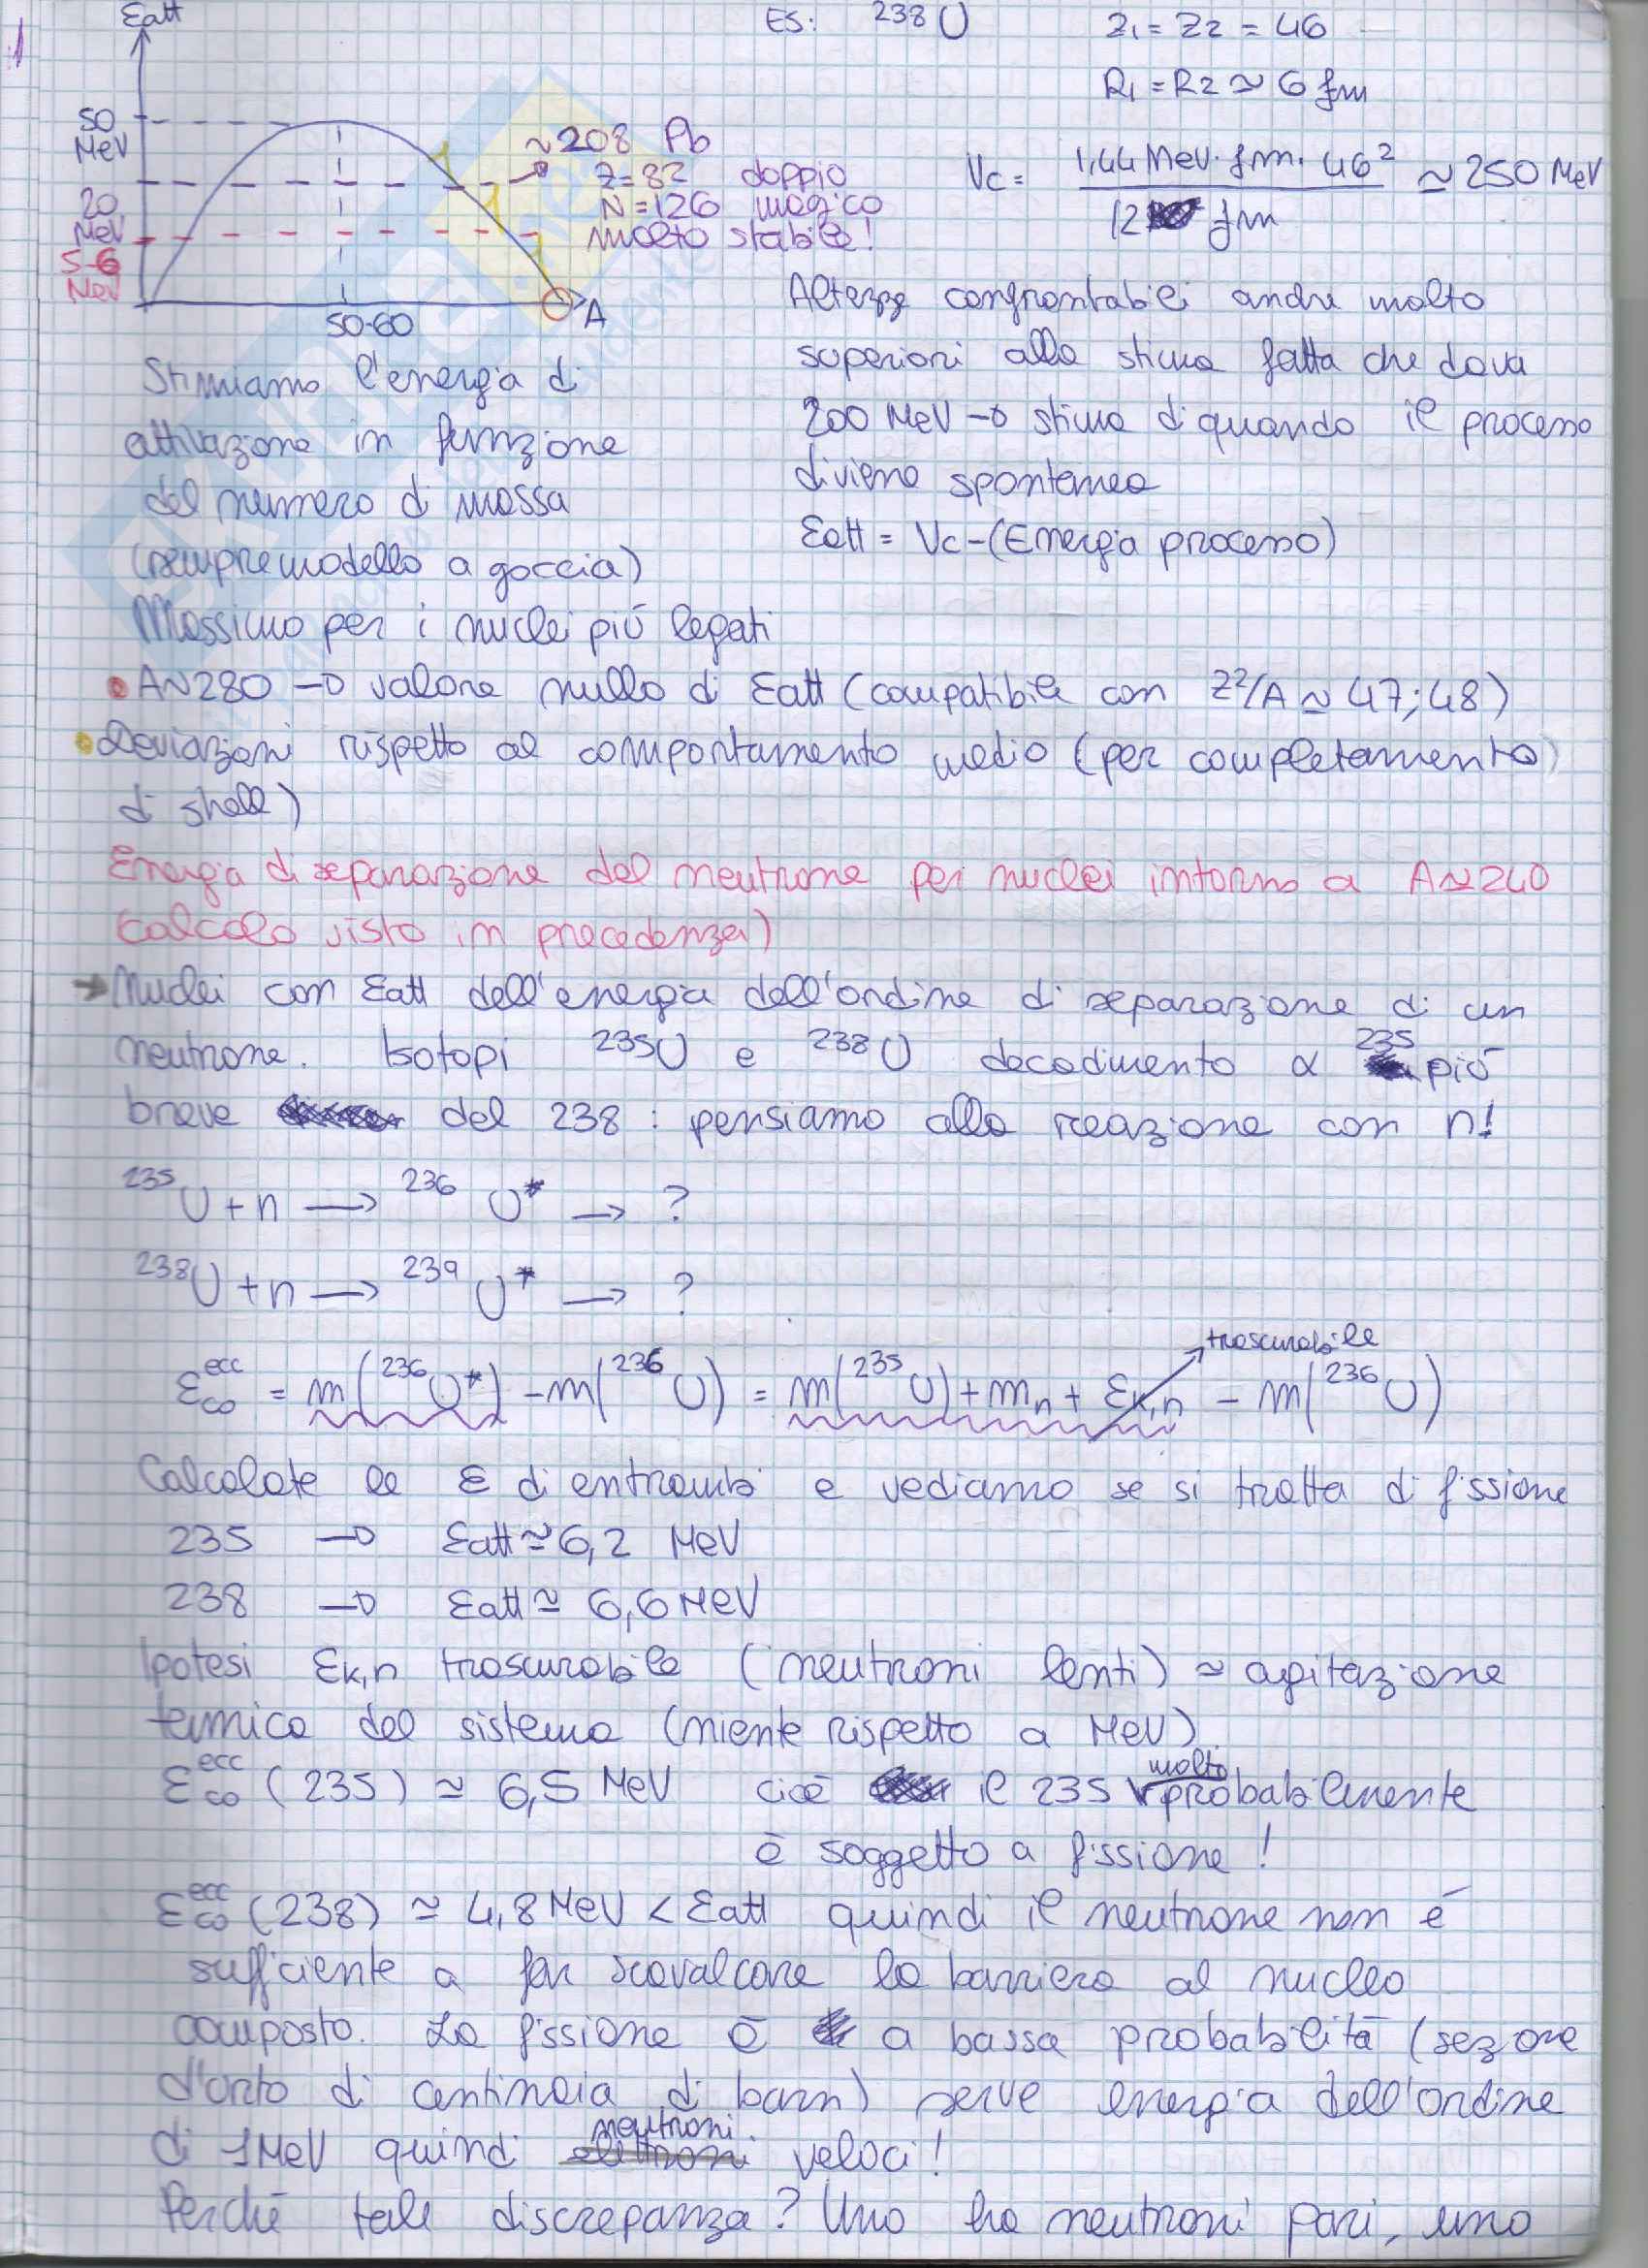 Eatt
50 MeV
20 MeV
5-6 MeV
50-60
A
~208 Pb
Z=82 doppio
N=126 magico
molto stabile!
ES: 238U Z1 = Z2 = 46
R1 = R2 ≃ 6 fm
Vc = 1,44 MeV·fm·46² / 12 fm ≃ 250 MeV
Altezze confrontabili anche molto
superiori alla stima fatta che dava
200 MeV → stima di quando il processo
diviene spontaneo
Eatt = Vc-(Energia processo)
Stimiamo l'energia di
attivazione in funzione
del numero di massa
(sempre modello a goccia)
Massimo per i nuclei più legati
A~280 → valore nullo di Eatt (compatibile con Z²/A ≃ 47;48)
Deviazioni rispetto al comportamento medio (per completamento
di shell)
Energia di separazione del neutrone per nuclei intorno a A≃240
(calcolo visto in precedenza)
→ Nuclei con Eatt dell'energia dell'ordine di separazione di un
neutrone. Isotopi 235U e 238U decadimento α 235 più
breve del 238 : pensiamo alla reazione con n!
235U + n → 236U* → ?
238U + n → 239U* → ?
trascurabile
Ɛco^ecc = m(236U*) - m(236U) = m(235U) + mn + Ɛk,n - m(236U)
Calcolate le Ɛ di entrambi e vediamo se si tratta di fissione
235 → Eatt ≃ 6,2 MeV
238 → Eatt ≃ 6,6 MeV
Ipotesi Ɛk,n trascurabile (neutroni lenti) ≃ agitazione
termica del sistema (niente rispetto a MeV)
Ɛco^ecc (235) ≃ 6,5 MeV cioè il 235 molto probabilmente
è soggetto a fissione!
Ɛco^ecc (238) ≃ 4,8 MeV < Eatt quindi il neutrone non è
sufficiente a far scavalcare la barriera al nucleo
composto. La fissione è a bassa probabilità (sezione
d'urto di centinaia di barn) serve energia dell'ordine
di 1MeV quindi neutroni veloci!
Perché tale discrepanza? Uno ha neutroni pari, uno